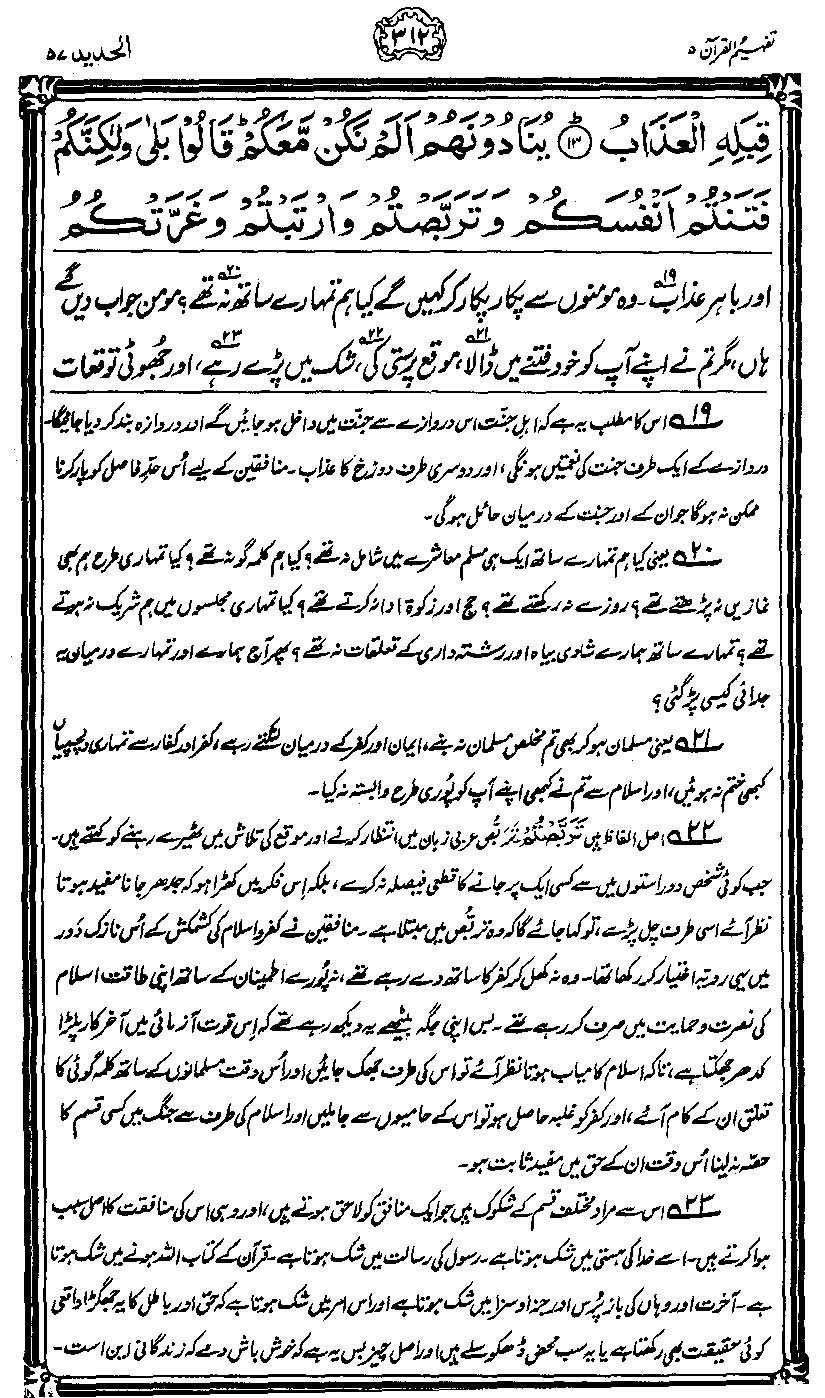 تفہیم القرآن ۵
۳۱۲
الحدید ۵۷
قِبَلِهِ الْعَذَابُ ۱۳ يُنَادُوْنَهُمْ اَلَمْ نَكُنْ مَّعَكُمْ قَالُوْا بَلٰى وَلٰكِنَّكُمْ
فَتَنْتُمْ اَنْفُسَكُمْ وَتَرَبَّصْتُمْ وَارْتَبْتُمْ وَغَرَّتْكُمُ
اور باہر عذاب ۱۹۔ وہ مومنوں سے پکار پکار کر کہیں گے کیا ہم تمہارے ساتھ نہ تھے ۲۰؟ مومن جواب دیں گے
ہاں، مگر تم نے اپنے آپ کو خود فتنے میں ڈالا ۲۱، موقع پرستی کی ۲۲، شک میں پڑے رہے ۲۳، اور جھوٹی توقعات
۱۹ اس کا مطلب یہ ہے کہ اہل جنت اس دروازے سے جنت میں داخل ہو جائیں گے اور دروازہ بند کر دیا جائیگا۔
دروازے کے ایک طرف جنت کی نعمتیں ہونگی، اور دوسری طرف دوزخ کا عذاب۔ منافقین کے لیے اُس حدِّ فاصل کو پار کرنا
ممکن نہ ہوگا جو ان کے اور جنت کے درمیان حائل ہوگی۔
۲۰ یعنی کیا ہم تمہارے ساتھ ایک ہی مسلم معاشرے میں شامل نہ تھے؟ کیا ہم کلمہ گو نہ تھے؟ کیا تمہاری طرح ہم بھی
نمازیں نہ پڑھتے تھے؟ روزے نہ رکھتے تھے؟ حج اور زکوٰۃ ادا نہ کرتے تھے؟ کیا تمہاری مجلسوں میں ہم شریک نہ ہوتے
تھے؟ تمہارے ساتھ ہمارے شادی بیاہ اور رشتہ داری کے تعلقات نہ تھے؟ پھر آج ہمارے اور تمہارے درمیان یہ
جدائی کیسی پڑ گئی؟
۲۱ یعنی مسلمان ہو کر بھی تم مخلص مسلمان نہ بنے، ایمان اور کفر کے درمیان لٹکتے رہے، کفر اور کفار سے تمہاری دلچسپیاں
کبھی ختم نہ ہوئیں، اور اسلام سے تم نے کبھی اپنے آپ کو پُوری طرح وابستہ نہ کیا۔
۲۲ اصل الفاظ ہیں تَرَبَّصْتُمْ تربُّص عربی زبان میں انتظار کرنے اور موقع کی تلاش میں ٹھیرے رہنے کو کہتے ہیں۔
جب کوئی شخص دو راستوں میں سے کسی ایک پر جانے کا قطعی فیصلہ نہ کرے، بلکہ اِس فکر میں کھڑا ہو کہ جدھر جانا مفید ہوتا
نظر آئے اسی طرف چل پڑے، تو کہا جائے گا کہ وہ تربُّص میں مبتلا ہے۔ منافقین نے کفر و اسلام کی کشمکش کے اُس نازک دَور
میں یہی رویّہ اختیار کر رکھا تھا۔ وہ نہ کھل کر کفر کا ساتھ دے رہے تھے، نہ پُورے اطمینان کے ساتھ اپنی طاقت اسلام
کی نصرت و حمایت میں صرف کر رہے تھے۔ بس اپنی جگہ بیٹھے یہ دیکھ رہے تھے کہ اِس قوت آزمائی میں آخر کار پلڑا
کدھر جھکتا ہے، تاکہ اسلام کامیاب ہوتا نظر آئے تو اس کی طرف جھک جائیں اور اُس وقت مسلمانوں کے ساتھ کلمہ گوئی کا
تعلق ان کے کام آئے، اور کفر کو غلبہ حاصل ہو تو اس کے حامیوں سے جا ملیں اور اسلام کی طرف سے جنگ میں کسی قسم کا
حصّہ نہ لینا اُس وقت ان کے حق میں مفید ثابت ہو۔
۲۳ اس سے مراد مختلف قسم کے شکوک ہیں جو ایک منافق کو لاحق ہوتے ہیں، اور وہی اس کی منافقت کا اصل سبب
ہوا کرتے ہیں۔ اسے خدا کی ہستی میں شک ہوتا ہے۔ رسول کی رسالت میں شک ہوتا ہے۔ قرآن کے کتاب اللہ ہونے میں شک ہوتا
ہے۔ آخرت اور وہاں کی باز پُرس اور جزا و سزا میں شک ہوتا ہے اور اس امر میں شک ہوتا ہے کہ حق اور باطل کا یہ جھگڑا واقعی
کوئی حقیقت بھی رکھتا ہے یا یہ سب محض ڈھکوسلے ہیں اور اصل چیز بس یہ ہے کہ خوش باش دمے کہ زندگانی این است۔